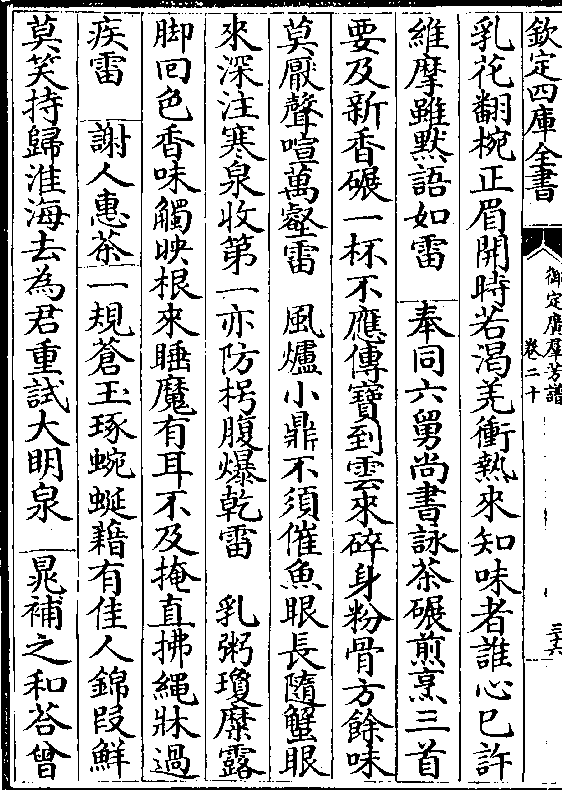 欽定四庫全書
御定廣羣芳譜
卷二十
三六
乳花翻椀正眉開時若渴羌衝熱來知味者誰心已許
維摩雖默語如雷　奉同六舅尚書詠茶碾煎烹三首
要及新香碾一杯不應傳寶到雲來碎身粉骨方餘味
莫厭聲喧萬壑雷　風爐小鼎不須催魚眼長隨蟹眼
來深注寒泉收第一亦防枵腹爆乾雷　乳粥瓊糜露
脚回色香味觸映根來睡魔有耳不及掩直拂繩牀過
疾雷　謝人惠茶　一規蒼玉琢蜿蜒藉有佳人錦段鮮
莫笑持歸淮海去為君重試大明泉　晁補之和荅曾